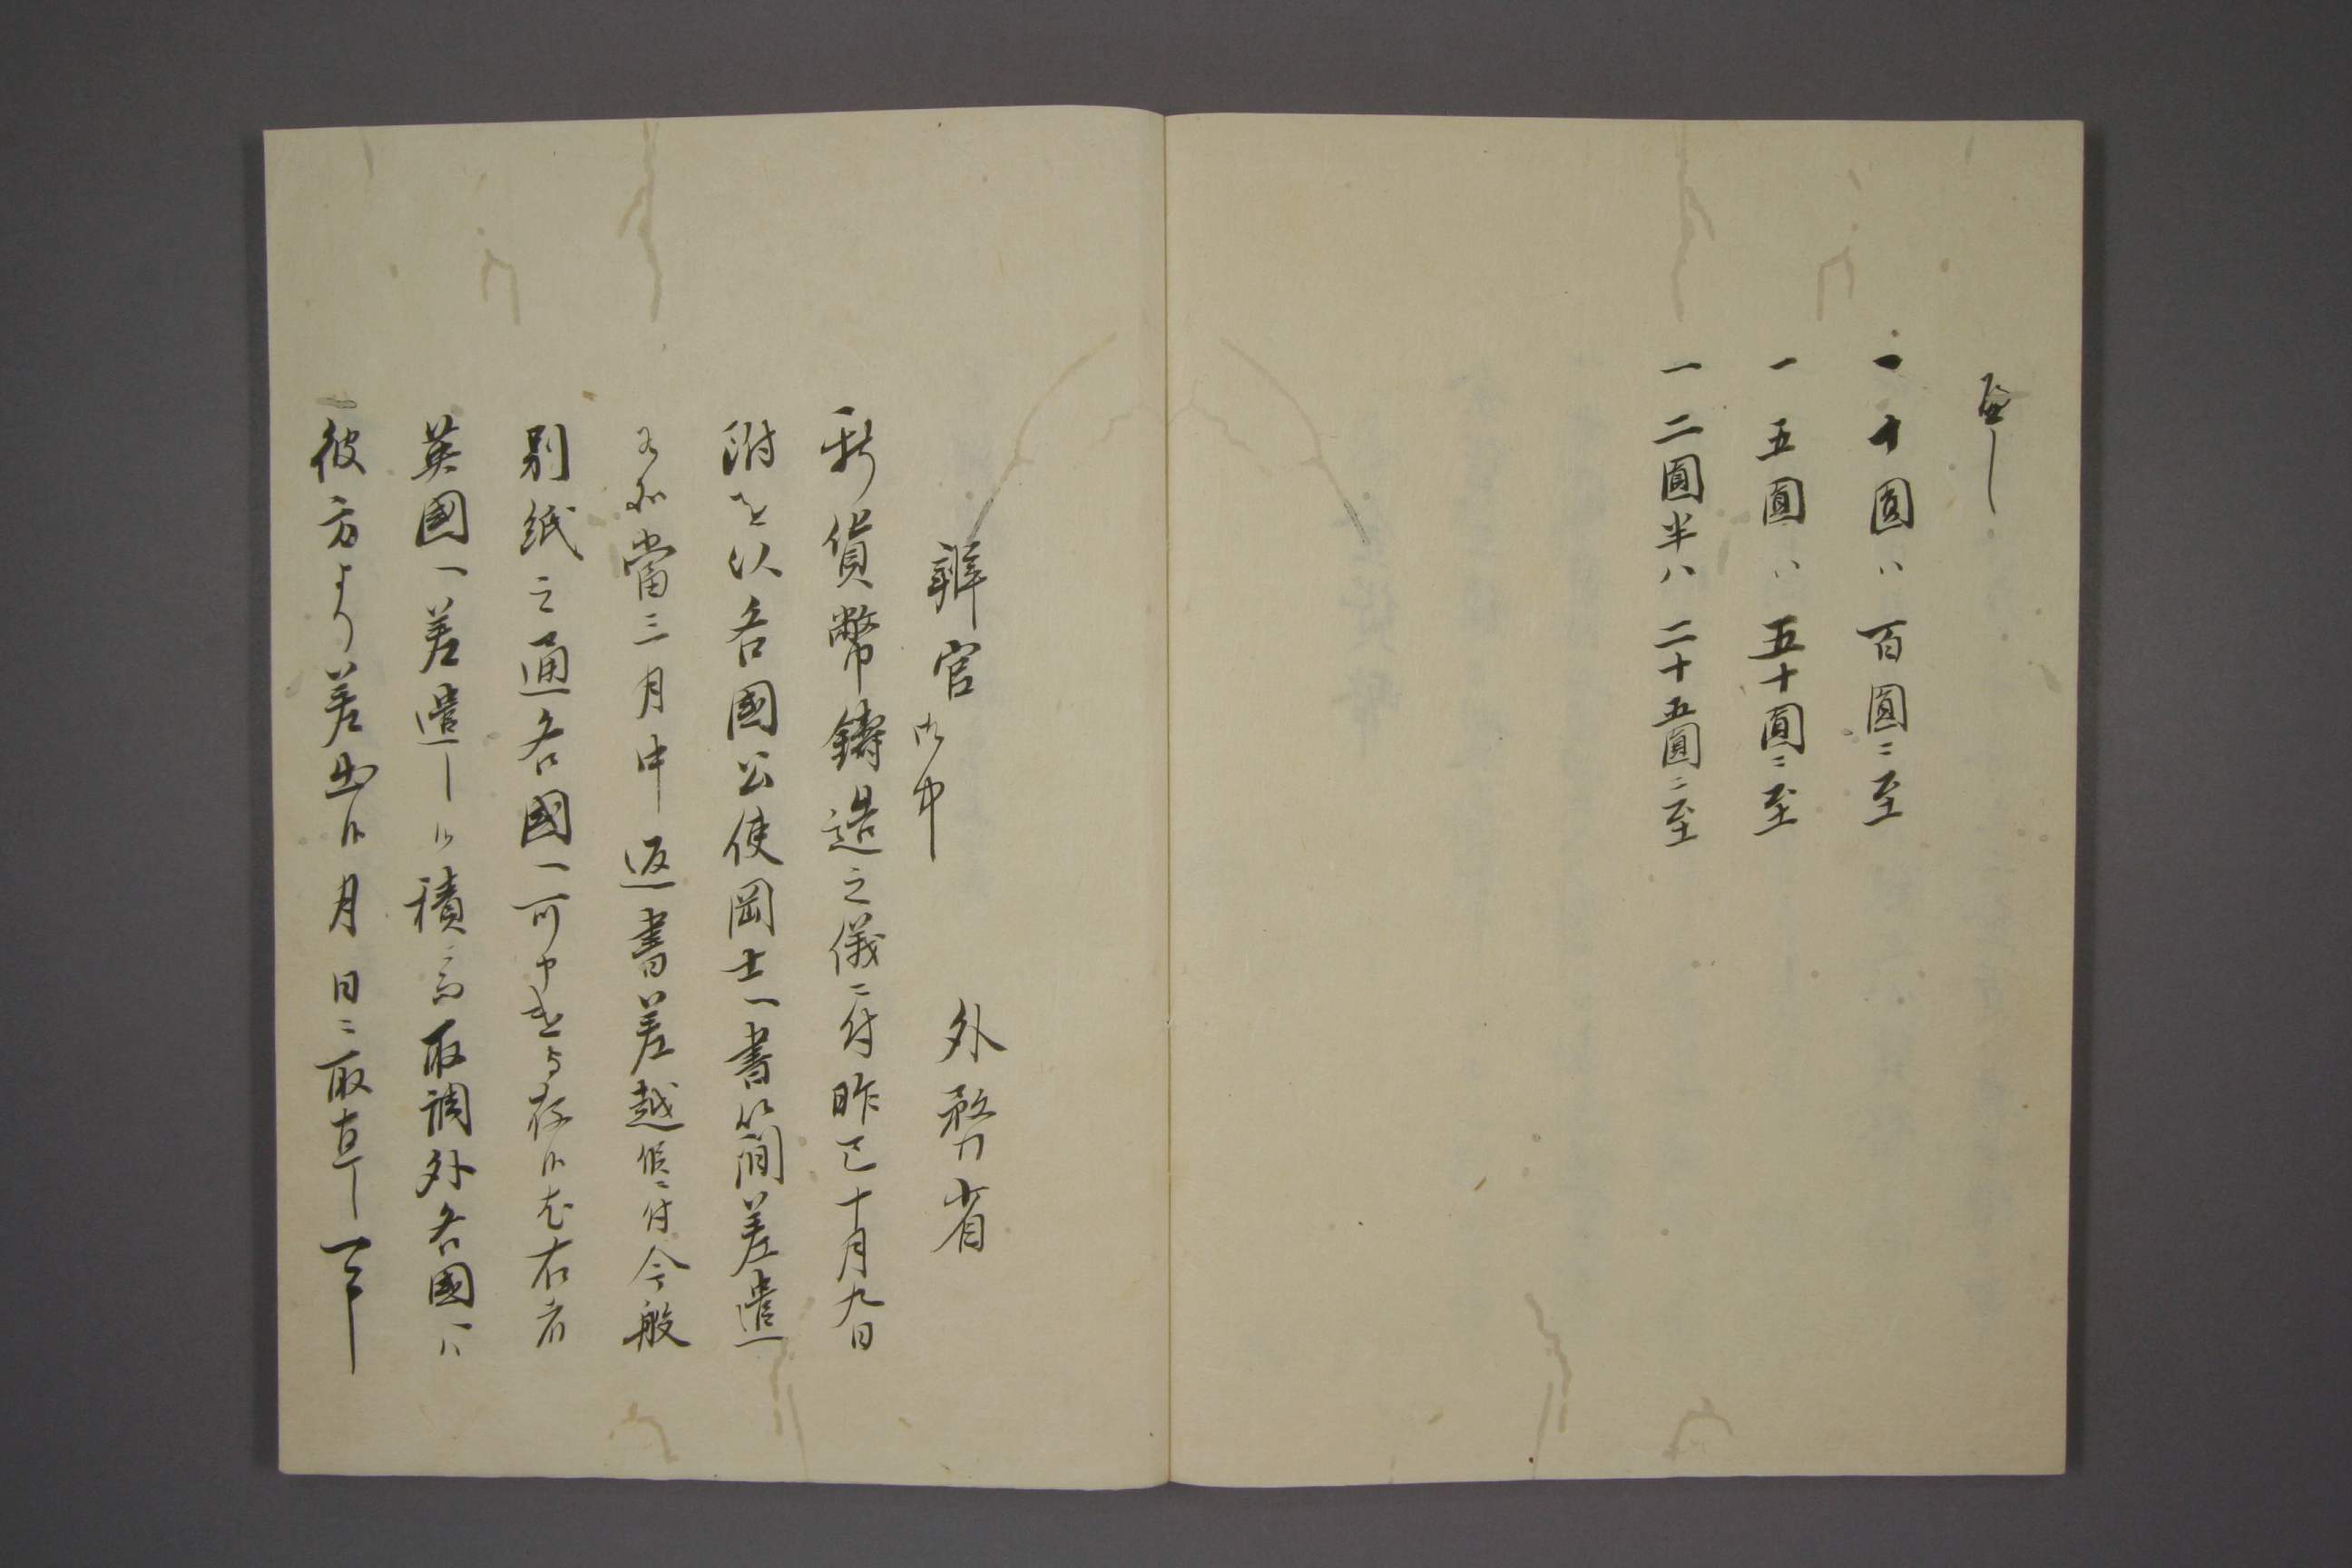 一十圓ハ百圓ニ至
一五圓ハ五十圓ニ至
一二圓半ハ二十五圓ニ至
辨官御中　外務省
新貨幣鑄造之儀ニ付昨巳十月九日
附を以各國公使岡士へ書簡差遣
置候處當三月中返書差越候ニ付今般
別紙之通各國へ可申遣与存候尤右者
英國へ差遣し候積ニ而取調外各國ハ
彼方より差出候月日ニ取直し